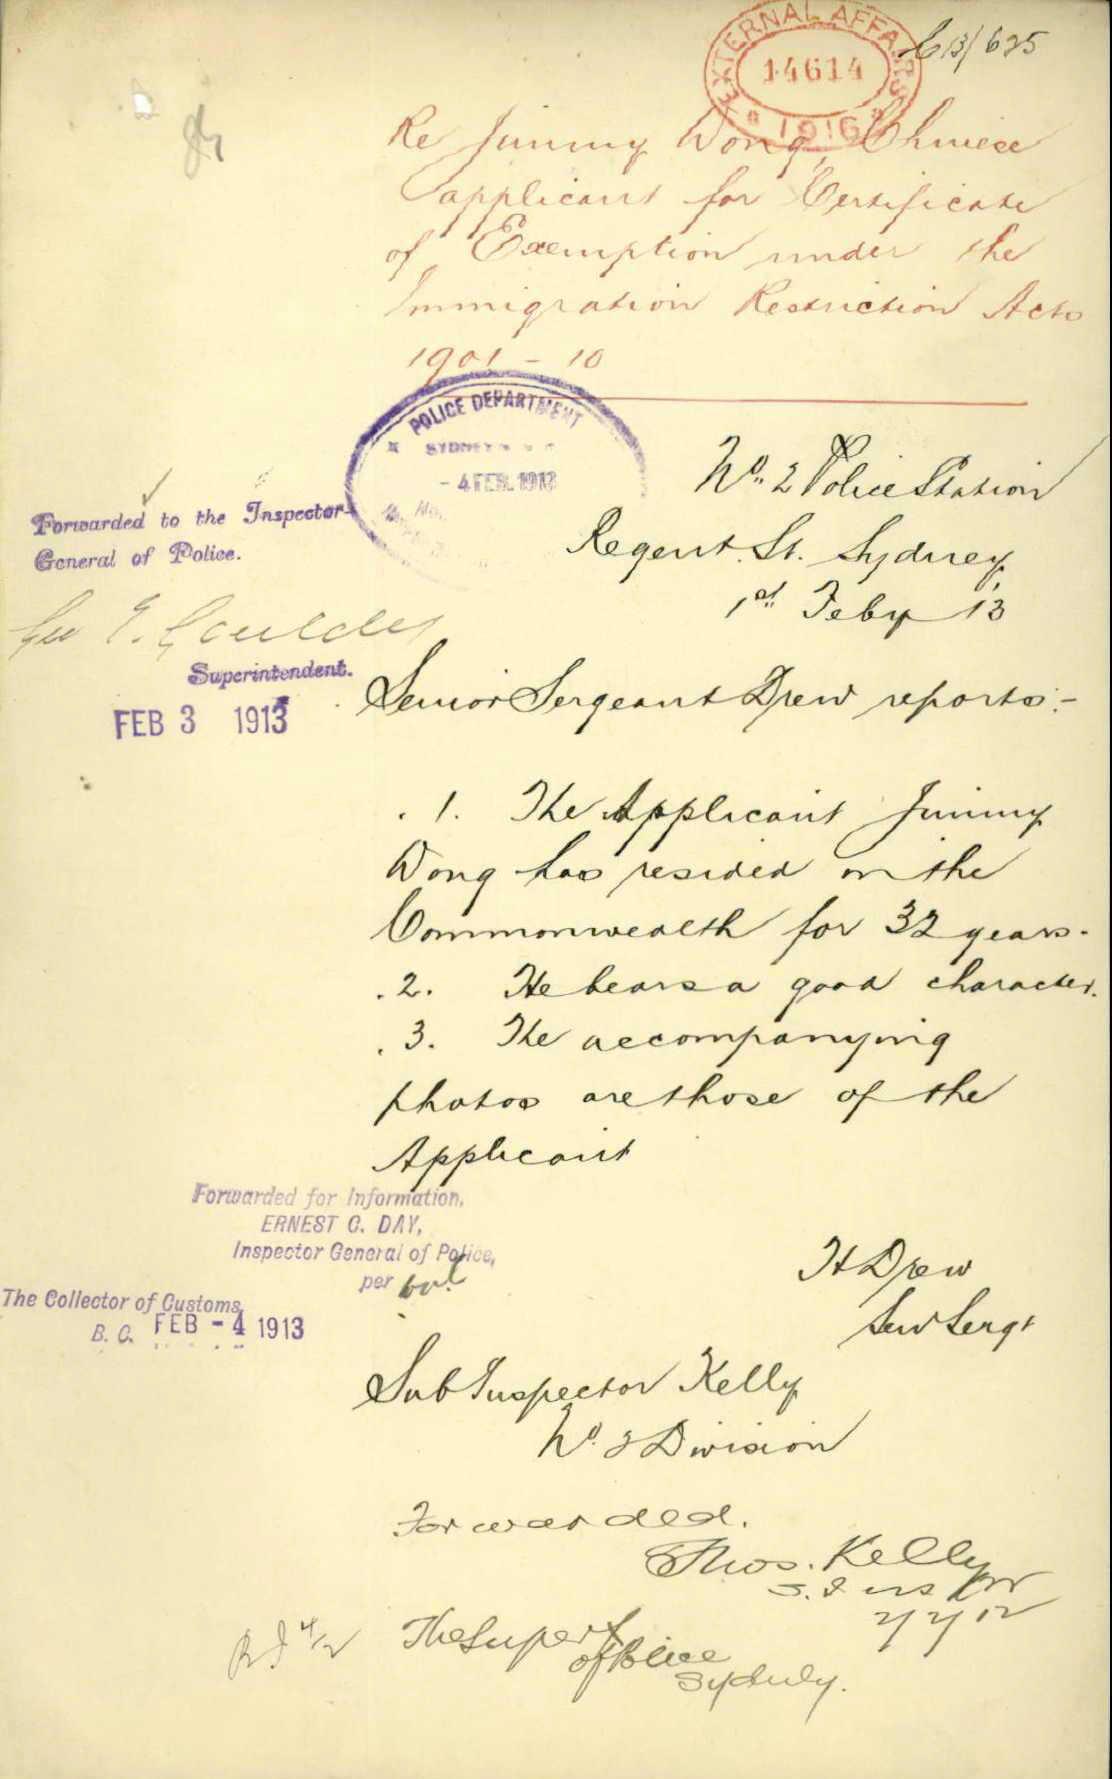 C13/625
EXTERNAL AFFAIRS
14614
1916
Re Jimmy Wong, Chinese
applicant for Certificate
of Exemption under the
Immigration Restriction Acts
1901 - 10
POLICE DEPARTMENT
SYDNEY
- 4 FEB. 1913
No. 2 Police Station
Regent. St. Sydney
1st Feby 13
Forwarded to the Inspector-
General of Police.
Geo E. Goulder
Superintendent.
FEB 3 1913
Senior Sergeant Drew reports:-
.1. The Applicant Jimmy
Wong has resided in the
Commonwealth for 32 years.
.2. He bears a good character.
.3. The accompanying
photos are those of the
Applicant
Forwarded for Information.
ERNEST C. DAY,
Inspector General of Police,
per
The Collector of Customs,
B. C. FEB - 4 1913
H Drew
Sen Sergt
Sub Inspector Kelly
No. 2 Division
Forwarded.
Thos. Kelly
S. Inspr
The Supert
of Police
Sydney.
4/2